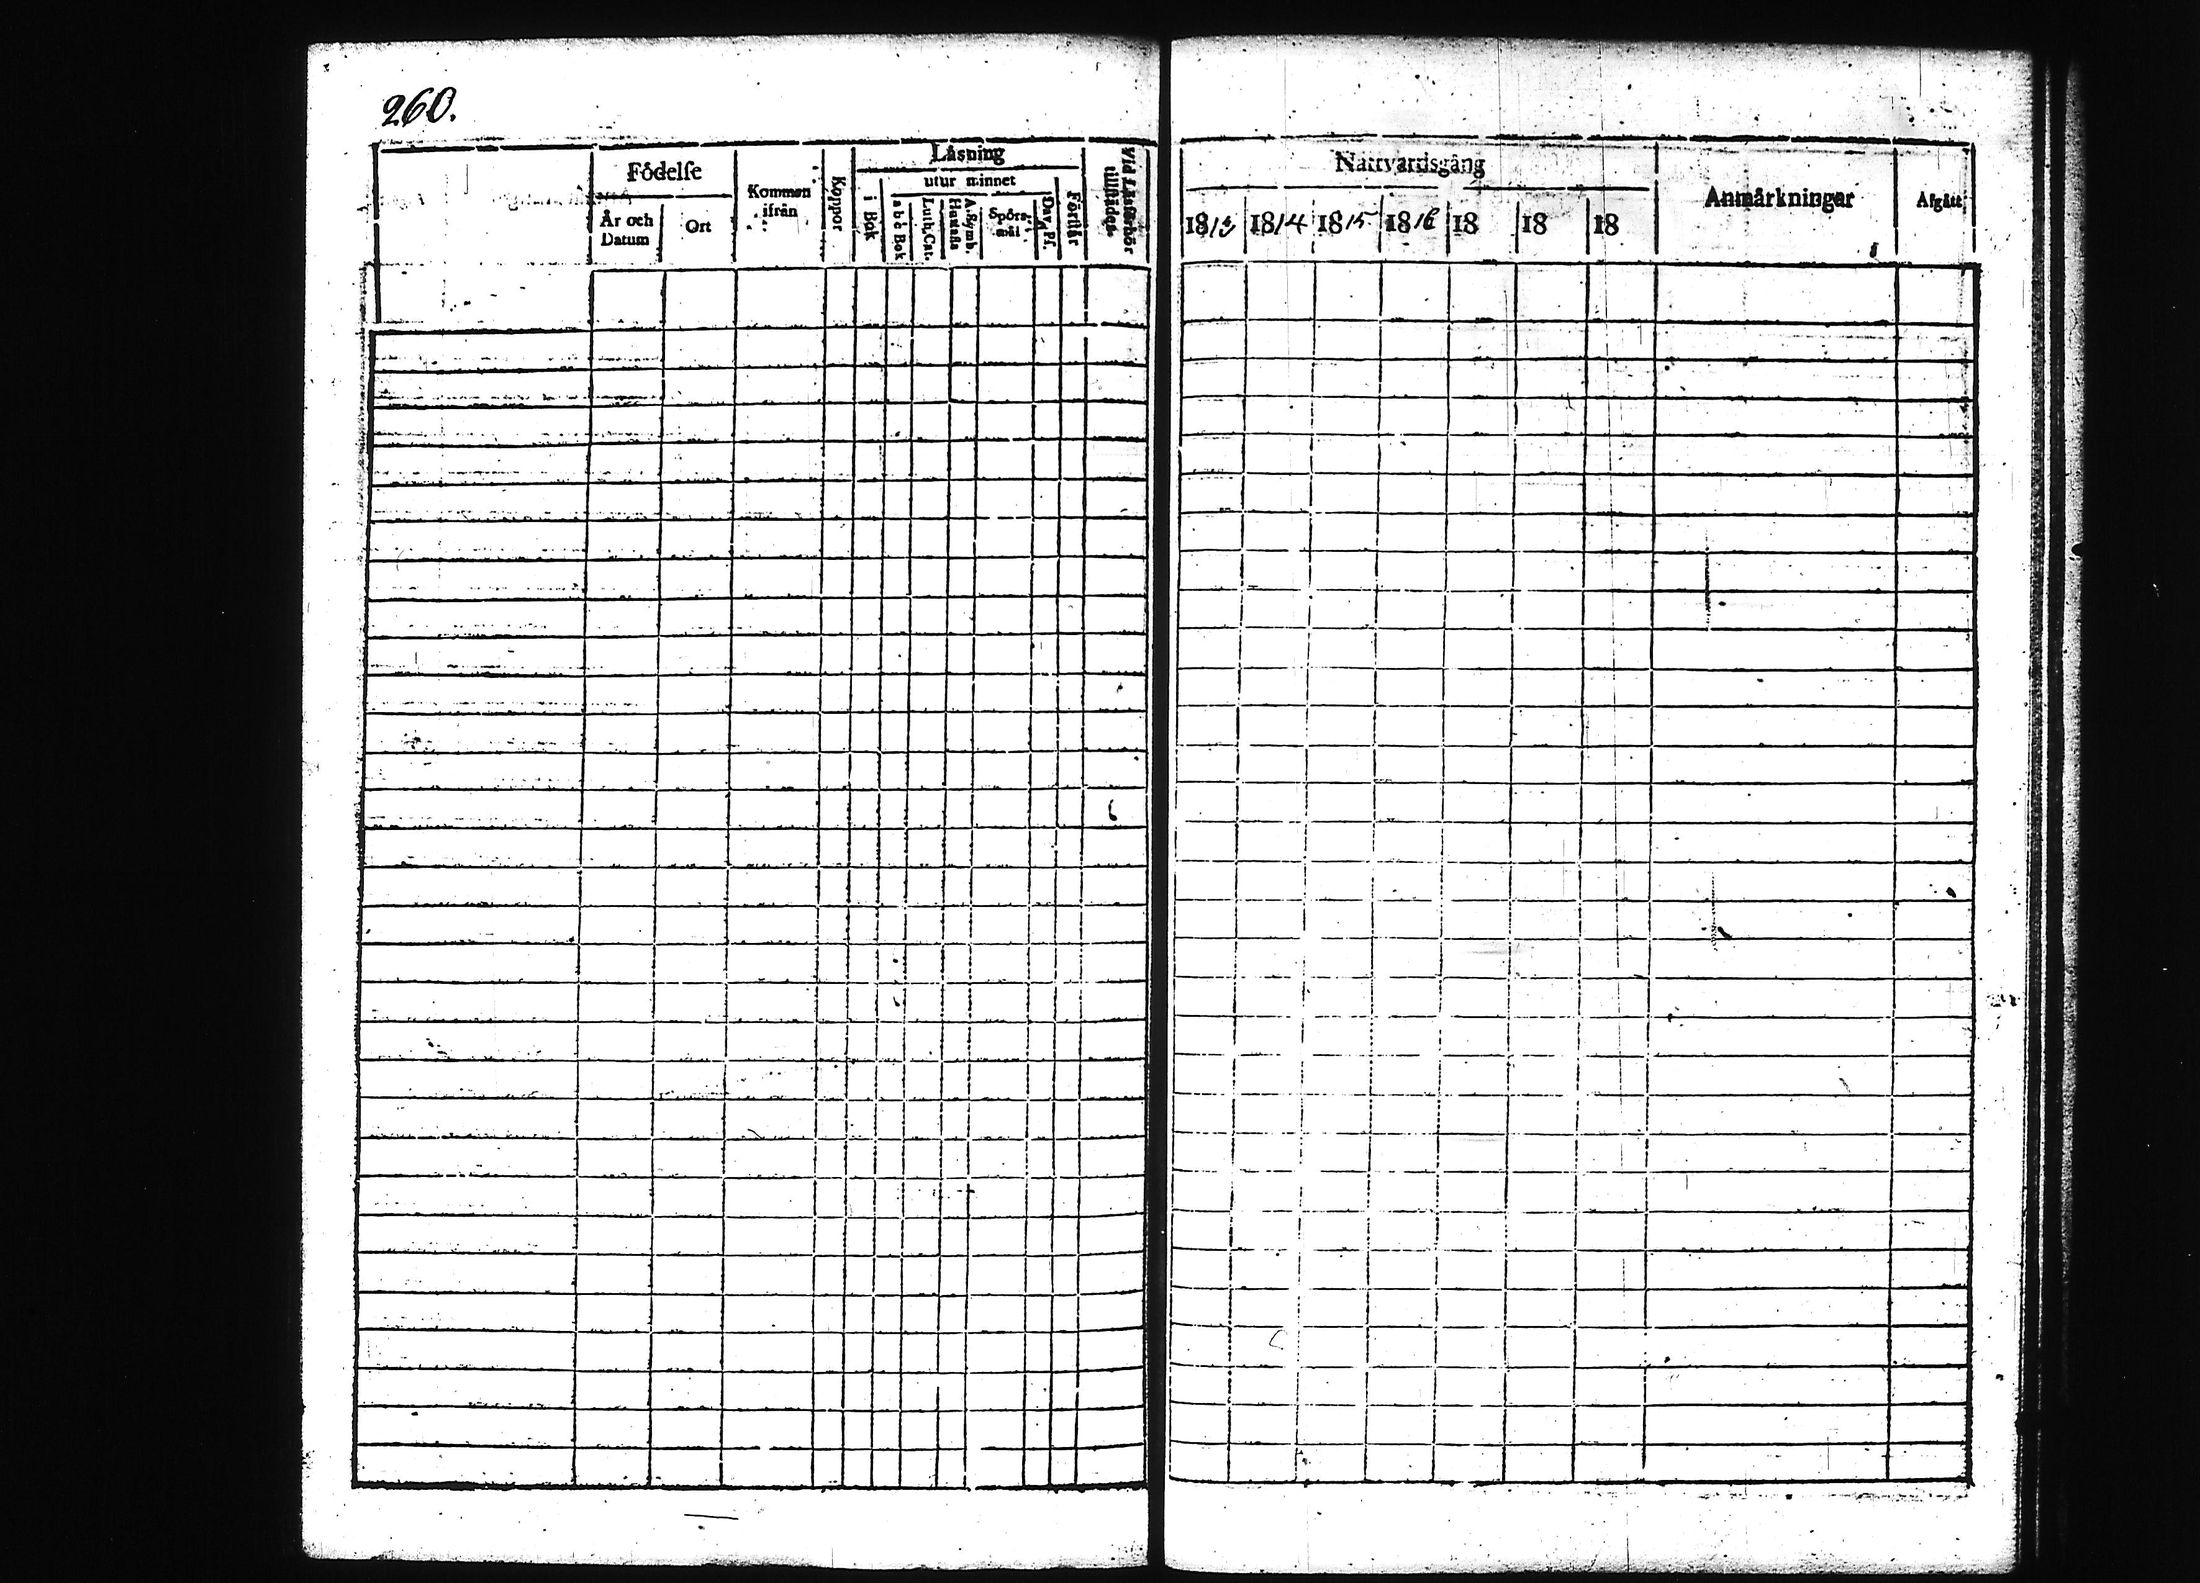 260.
Födelse
År och Datum
Ort
Kommen ifrån
Koppor
Läsning
i Bok
utur minnet
a b c Bok
Luth. Cat.
A. Symb. Hustafla
Spörsmål
Dav. Ps.
Förstår
Vid Läsförhör tillstädes
Nattvardsgång
1813 1814 1815 1816 18 18 18
Anmärkningar
Afgått